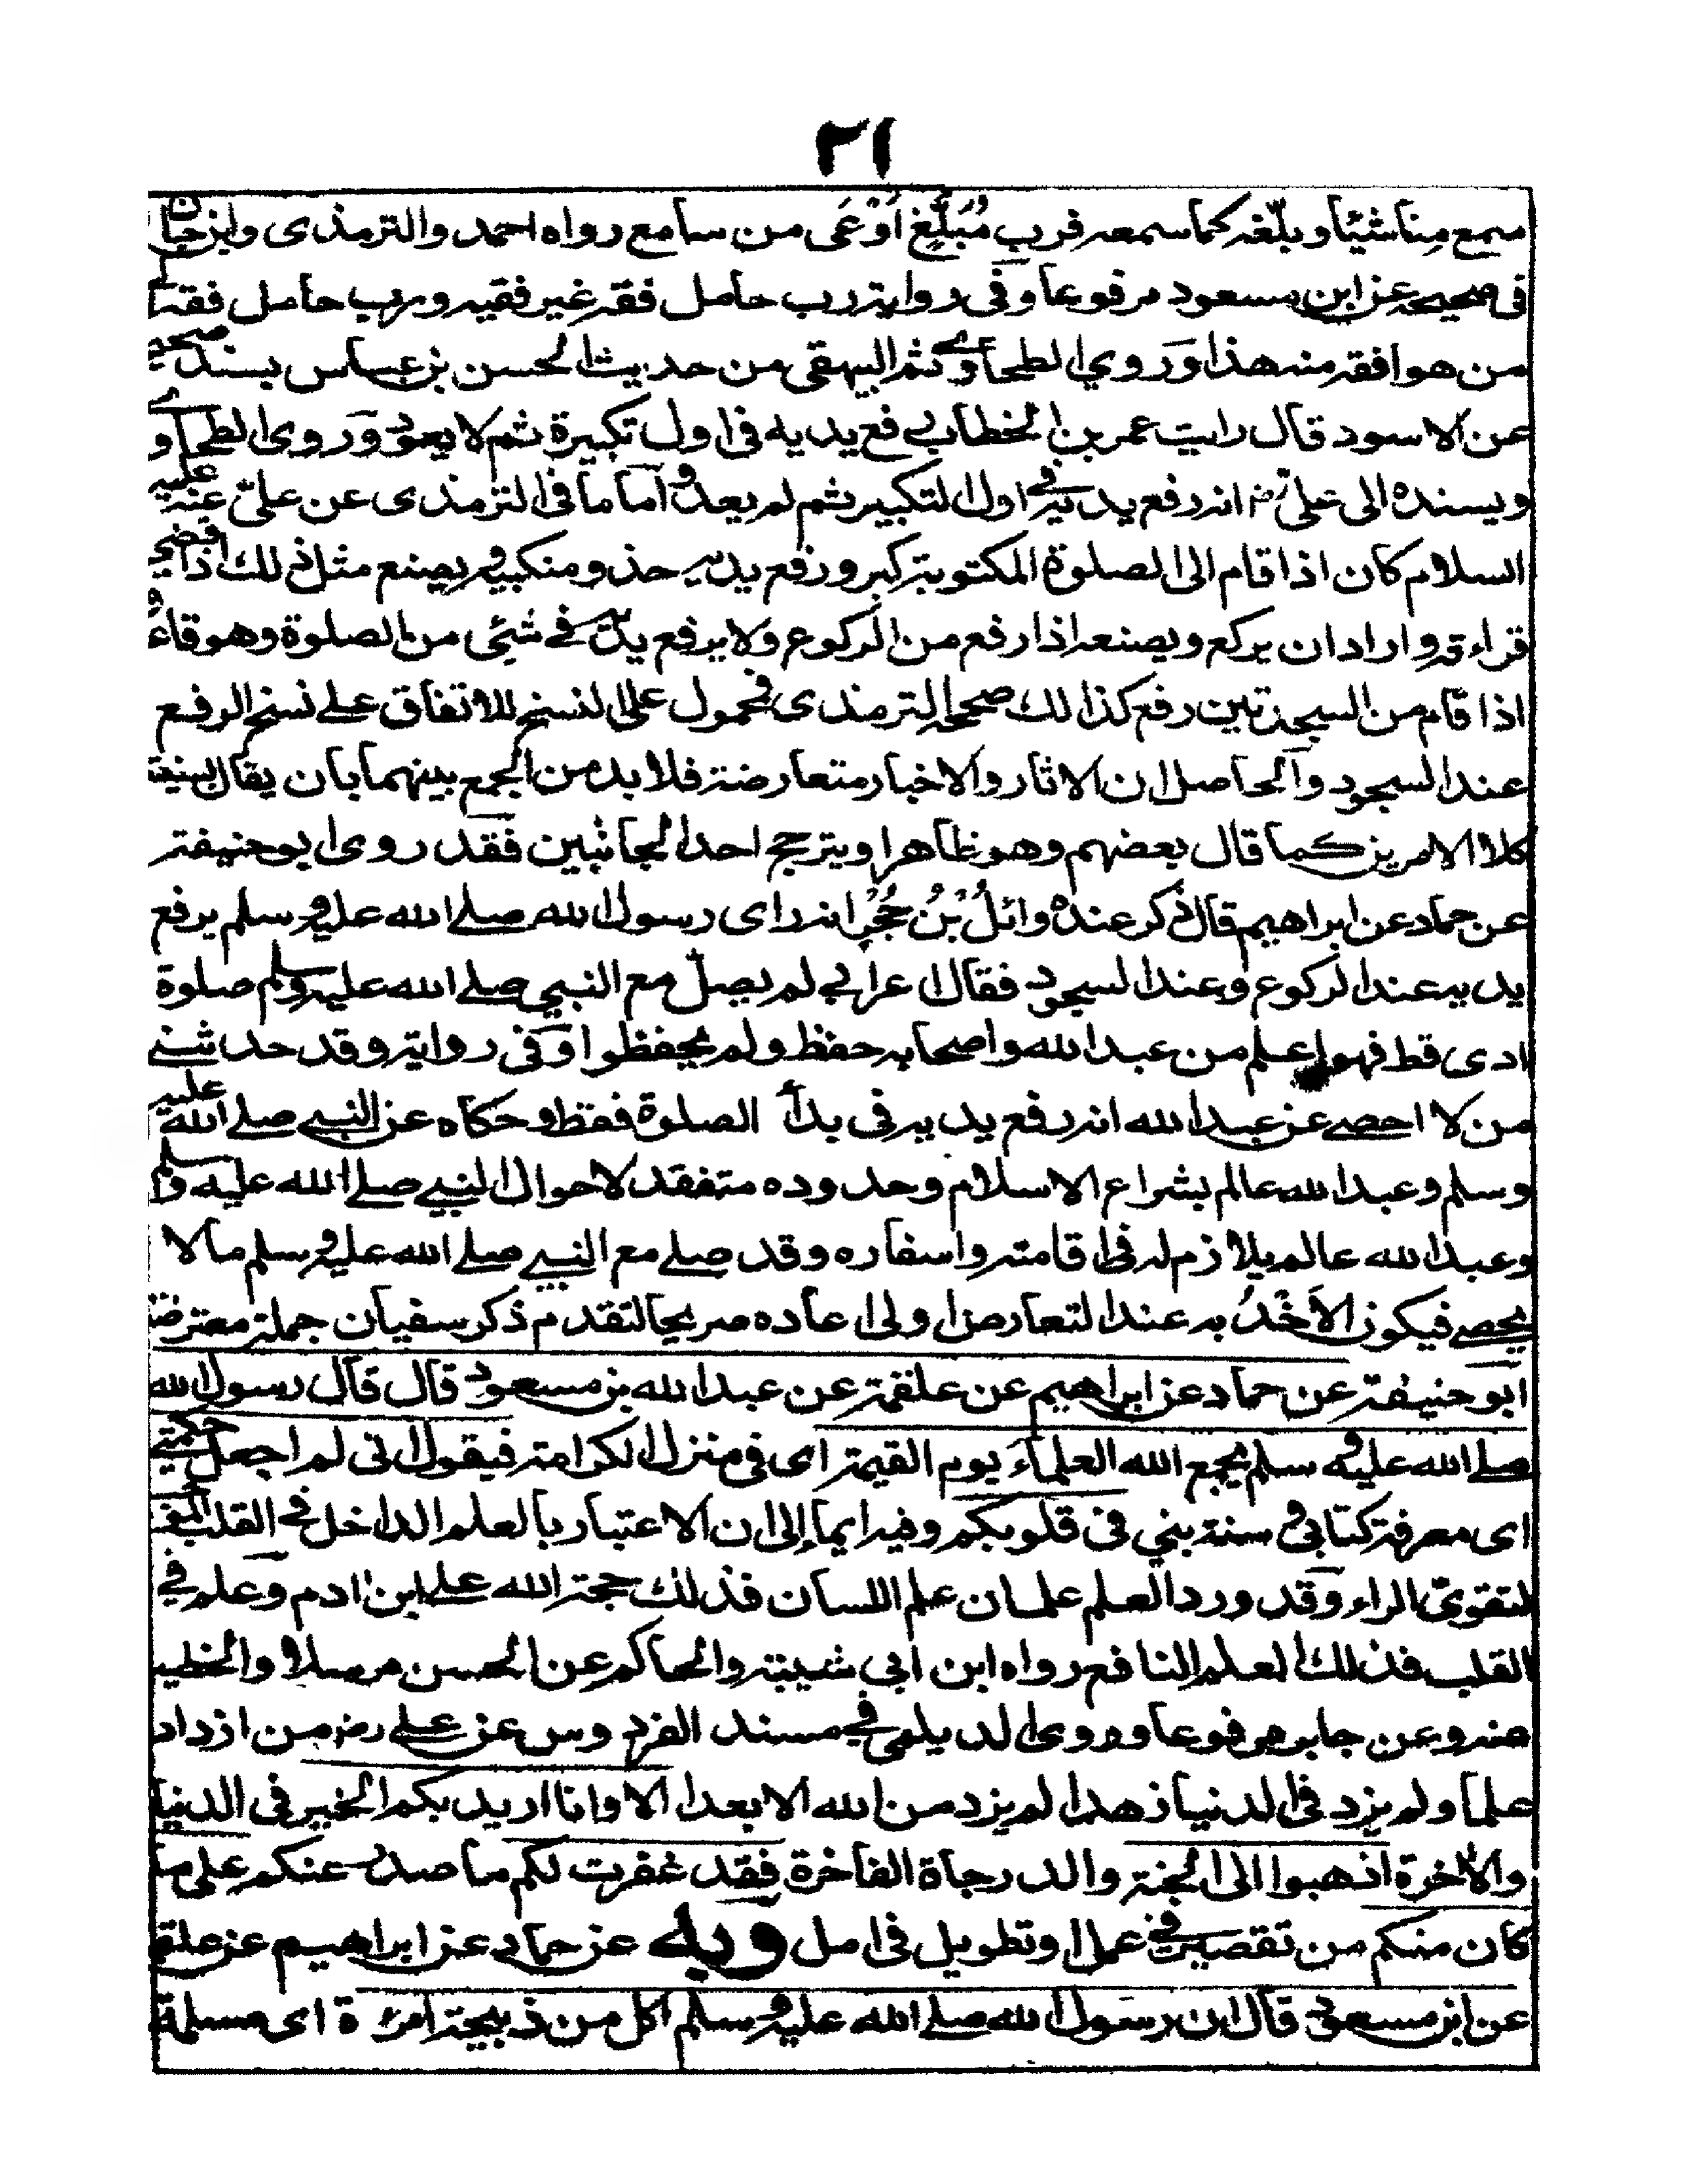 ٢١
سمع منا شيئا وبلّغه كما سمعه فرب مُبَلَّغٍ اَوْعَى من سامع رواه احمد والترمذى وابن حبان
فى صحيحه عن ابن مسعود مرفوعا وفى رواية رب حامل فقه غير فقيه ورب حامل فقه الى
من هو افقه منه هذا وَروي الطحاوے ثم البيهقى من حديث الحسن بن عياس بسند صحيح
عن الاسود قال رايت عمر بن الخطاب يرفع يديه فى اول تكبيرة ثم لا يعود وَروى الطحاوے
وبسنده الى على رض انه رفع يديه فے اول التكبير ثم لم يعد وَاما ما فى الترمذى عن علىّ عنه عليه
السلام كان اذا قام الى الصلوة المكتوبة كبر ورفع يديه حذو منكبيه ويصنع مثل ذلك اذا قضى
قراءته وارادان يركع ويصنعه اذا رفع من الركوع ولا يرفع يديه فے شئى من الصلوة وهو قاعد و
اذا قام من السجدتين رفع كذالك صححه الترمذى فمحمول على النسخ للاتفاق علے نسخ الرفع
عند السجود وآلحاصل ان الاثار والاخبار متعارضة فلا بد من الجمع بينهما بان يقال بسنية
كلا الامرين كما قال بعضهم وهو ظاهر او يترجح احد الجانبين فقد روى ابو حنيفة
عن حماد عن ابراهيم قال ذكر عنده وائلُ بْنُ حُجْرٍ انه راى رسول الله صلے الله عليه وسلم يرفع
يديه عند الركوع وعند السجود فقال اعرابي لم يصلّ مع النبي صلے الله عليه وسلم صلوة
ادى قط فهو اعلم من عبد الله واصحابه حفظ ولم يحفظوا وَفى رواية وقد حدثنے
من لا احصے عن عبد الله انه رفع يديه فى بدأ الصلوة فقط وحكاه عن النبے صلے الله عليه
وسلم وعبد الله عالم بشرايع الاسلام وحدوده متفقد لاحوال النبے صلے الله عليه وسلم
وعبد الله عالم يلازم له فى اقامته واسفاره وقد صلے مع النبے صلے الله عليه وسلم مالا
يحصے فيكون الاَخْذُ به عند التعارض اولى اعاده صريحا لتقدم ذكر سفيان جملة معترضة
ابو حنيفة عن حماد عن ابراهيم عن علقمة عن عبد الله بن مسعود قال قال رسول الله
صلے الله عليه وسلم يجمع الله العلماء يوم القيمة اى فى منزل الكرامة فيقول انى لم اجعل حكمتے
اى معرفة كتابى وسنة بني فى قلوبكم وفيه ايما إلى ان الاعتبار بالعلم الداخل فے القلب
لتقوىّ الراء وَقد ورد العلم علمان علم اللسان فذلك حجة الله علے ابن ادم وعلم فے
القلب فذلك العلم النافع رواه ابن ابى شيبة والحاكم عن الحسن مرسلا والخطيب
عنه وعن جابر مرفوعا وروى الديلمى فے مسند الفردوس عن علے رض من ازداد
علما ولم يزد فى الدنيا زهدا لم يزد من الله الا بعدا الا وانا اريد بكم الخير فى الدنيا
والاخرة اذهبوا الى الجنة والدرجاة الفاخرة فقد غفرت لكم ما صدر عنكم على ما
كان منكم من تقصير فے عمل او تطويل فى امل وبه عن حماد عن ابراهيم عن علقمة
عن ابن مسعود قال ان رسول الله صلے الله عليه وسلم اكل من ذبيحة امرءة اى مسلمة